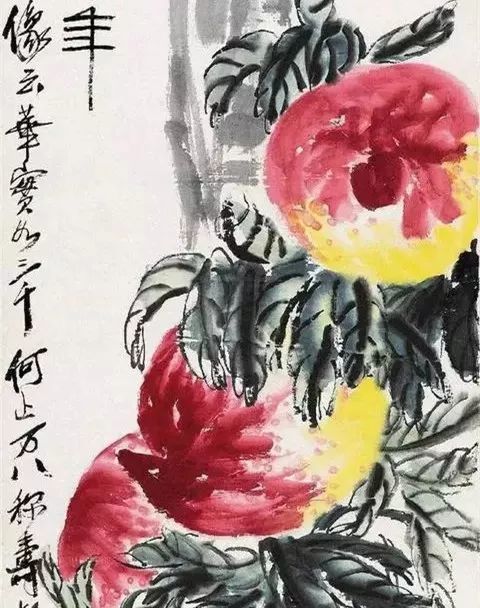 年
像云華實三千何止万八稱壽